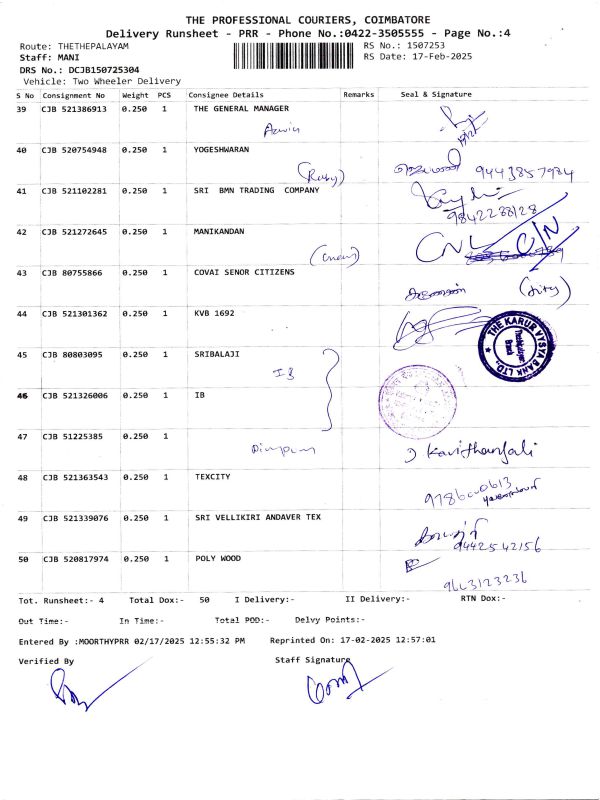 THE PROFESSIONAL COURIERS, COIMBATORE
Delivery Runsheet - PRR - Phone No.:0422-3505555 - Page No.:4
Route: THETHEPALAYAM RS No.: 1507253
Staff: MANI RS Date: 17-Feb-2025
DRS No.: DCJB150725304
Vehicle: Two Wheeler Delivery
S No Consignment No Weight PCS Consignee Details Remarks Seal & Signature
39 CJB 521386913 0.250 1 THE GENERAL MANAGER
40 CJB 520754948 0.250 1 YOGESHWARAN
(Roby) 9443857984
41 CJB 521102281 0.250 1 SRI BMN TRADING COMPANY
9842238128
42 CJB 521272645 0.250 1 MANIKANDAN
CNL C/N
43 CJB 80755866 0.250 1 COVAI SENOR CITIZENS
44 CJB 521301362 0.250 1 KVB 1692
THE KARUR VYSYA BANK LTD.,
45 CJB 80803095 0.250 1 SRIBALAJI
IB
46 CJB 521326006 0.250 1 IB
47 CJB 51225385 0.250 1
Kavithanjali
48 CJB 521363543 0.250 1 TEXCITY
9786000613
49 CJB 521339076 0.250 1 SRI VELLIKIRI ANDAVER TEX
9442542156
50 CJB 520817974 0.250 1 POLY WOOD
9663123236
Tot. Runsheet:- 4 Total Dox:- 50 I Delivery:- II Delivery:- RTN Dox:-
Out Time:- In Time:- Total POD:- Delvy Points:-
Entered By :MOORTHYPRR 02/17/2025 12:55:32 PM Reprinted On: 17-02-2025 12:57:01
Verified By Staff Signature